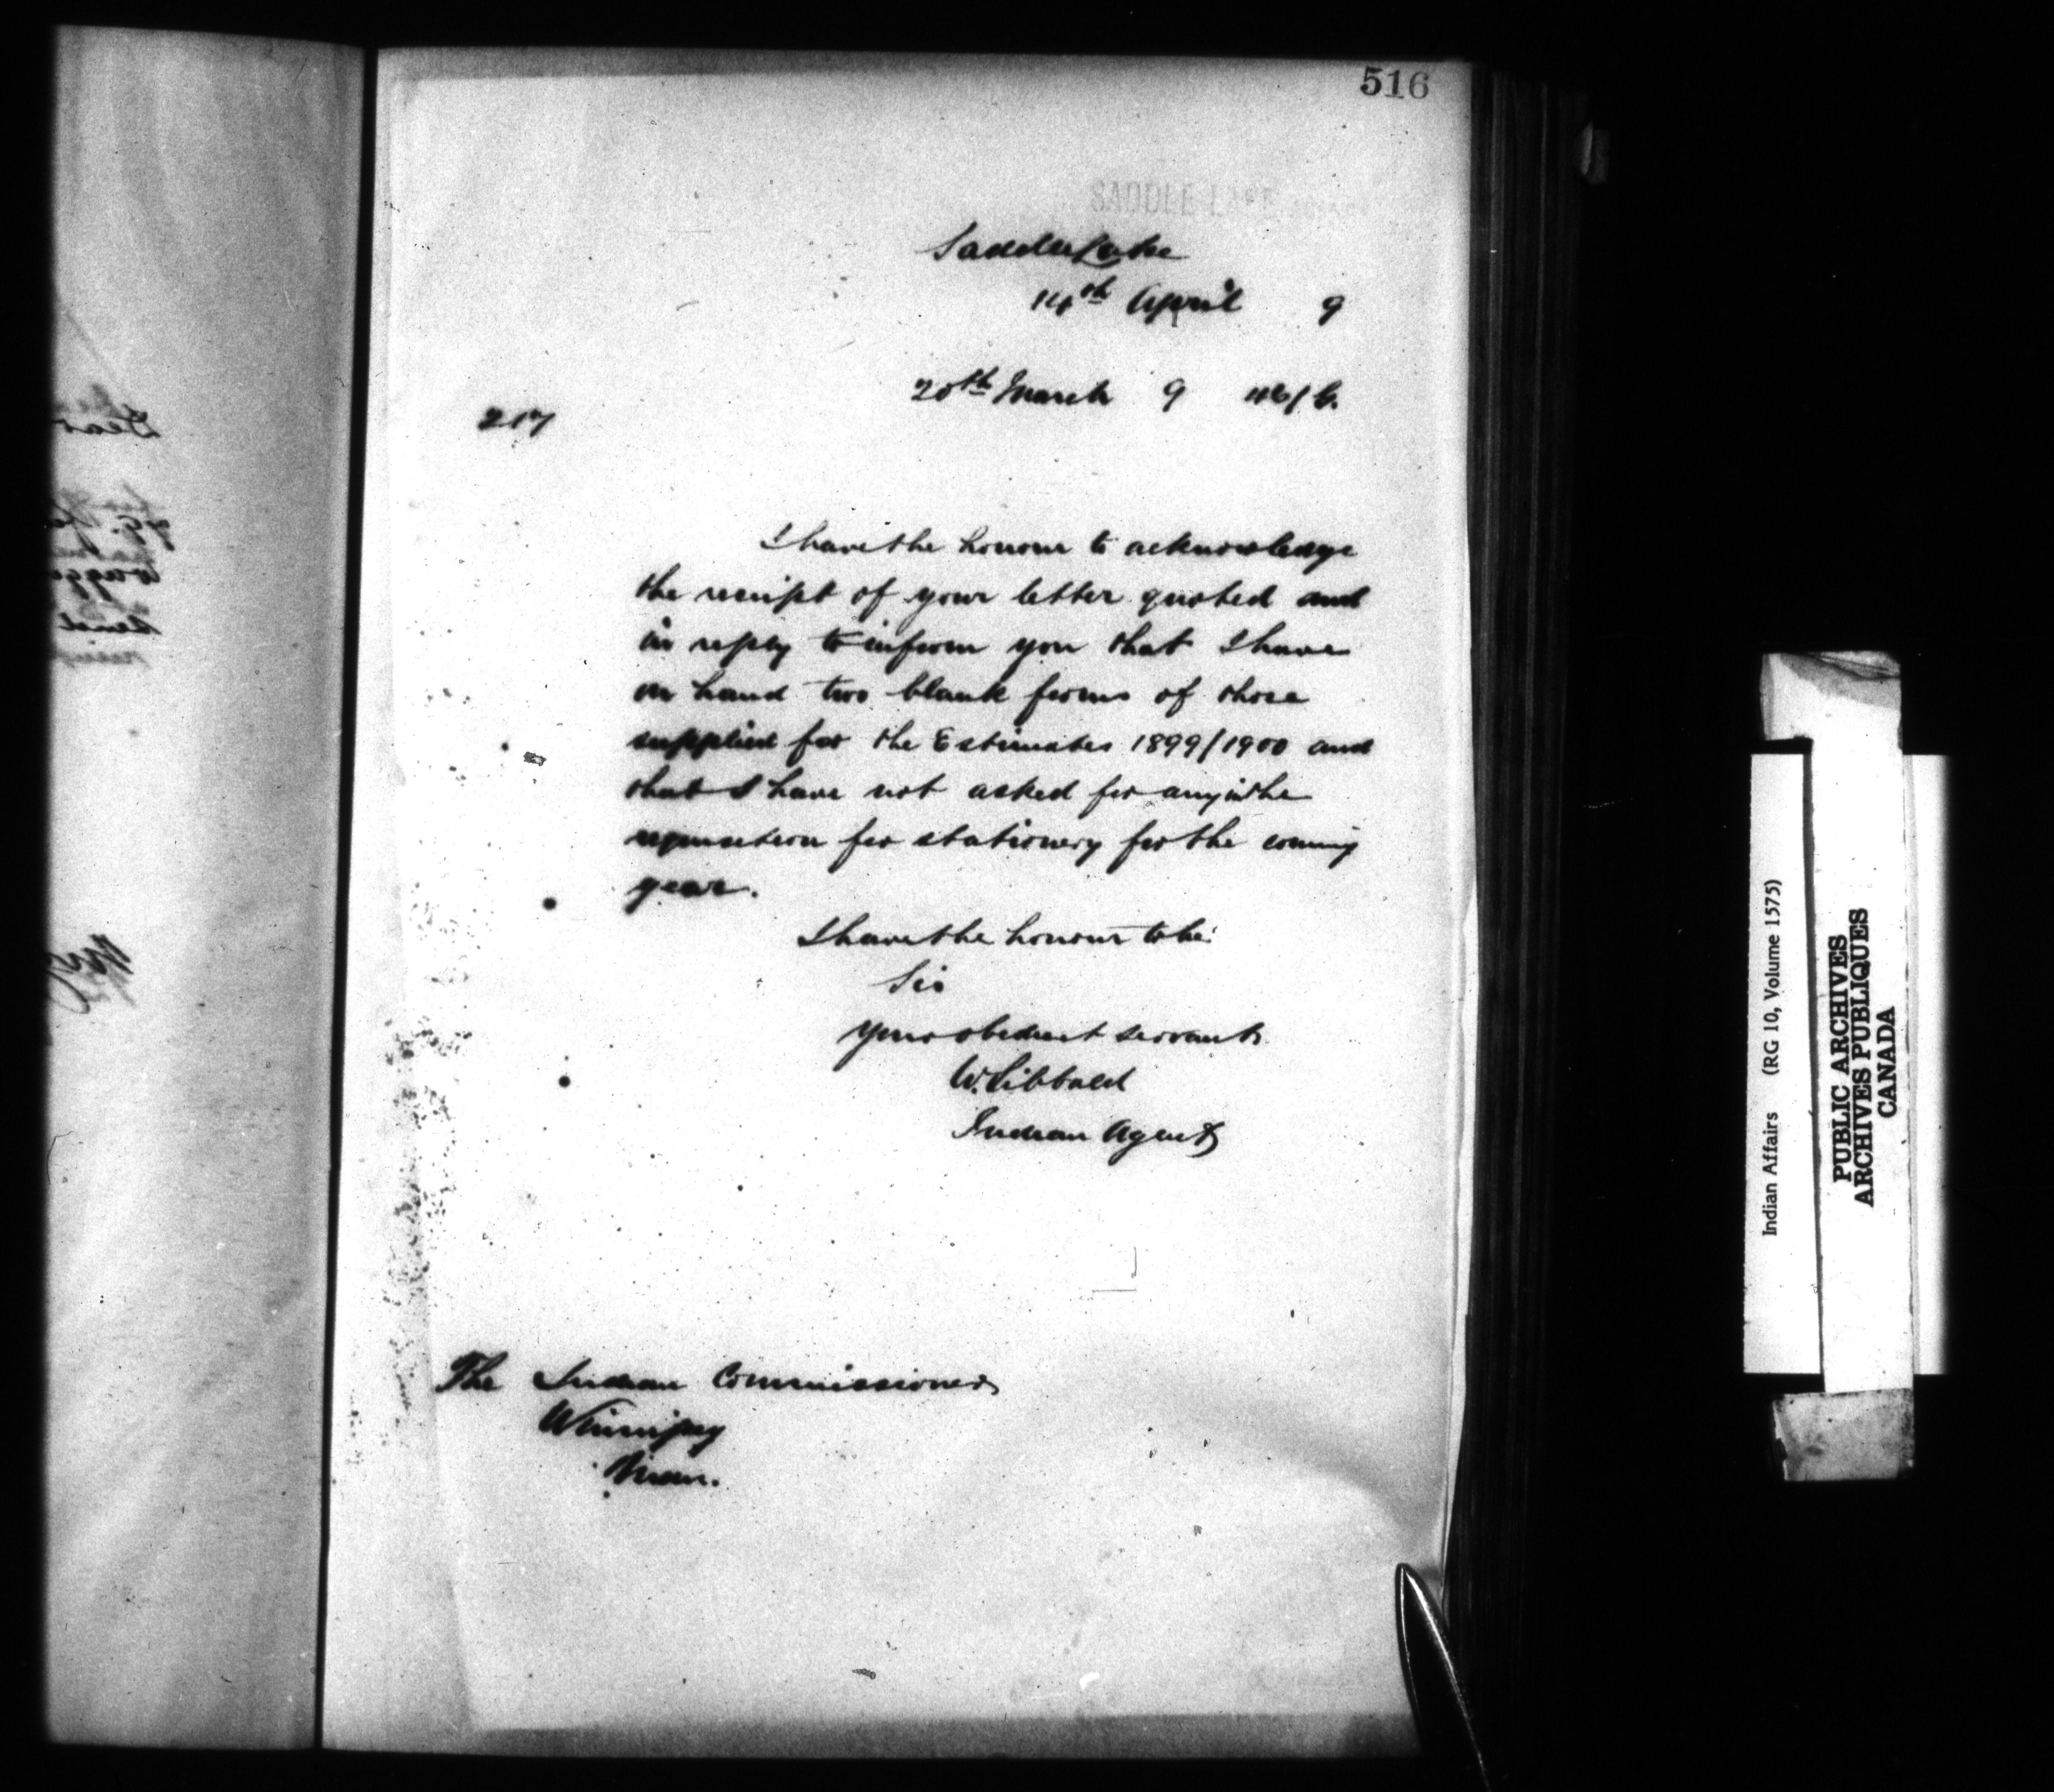 516
SADDLE LAKE
Saddle Lake
14th April 9
20th March 9
217
I have the honour to acknowledge
the receipt of your letter quoted and
in reply to inform you that I have
on hand two blank forms of those
supplied for the Estimates 1899/1900 and
that I have not asked for any in the
requisition for stationery for the coming
year.
I have the honour to be
Sir
Your obedient servant
W. Sibbald
Indian Agent
The Indian Commissioner
Winnipeg
Man.
Indian Affairs (RG 10, Volume 1575)
PUBLIC ARCHIVES
ARCHIVES PUBLIQUES
CANADA